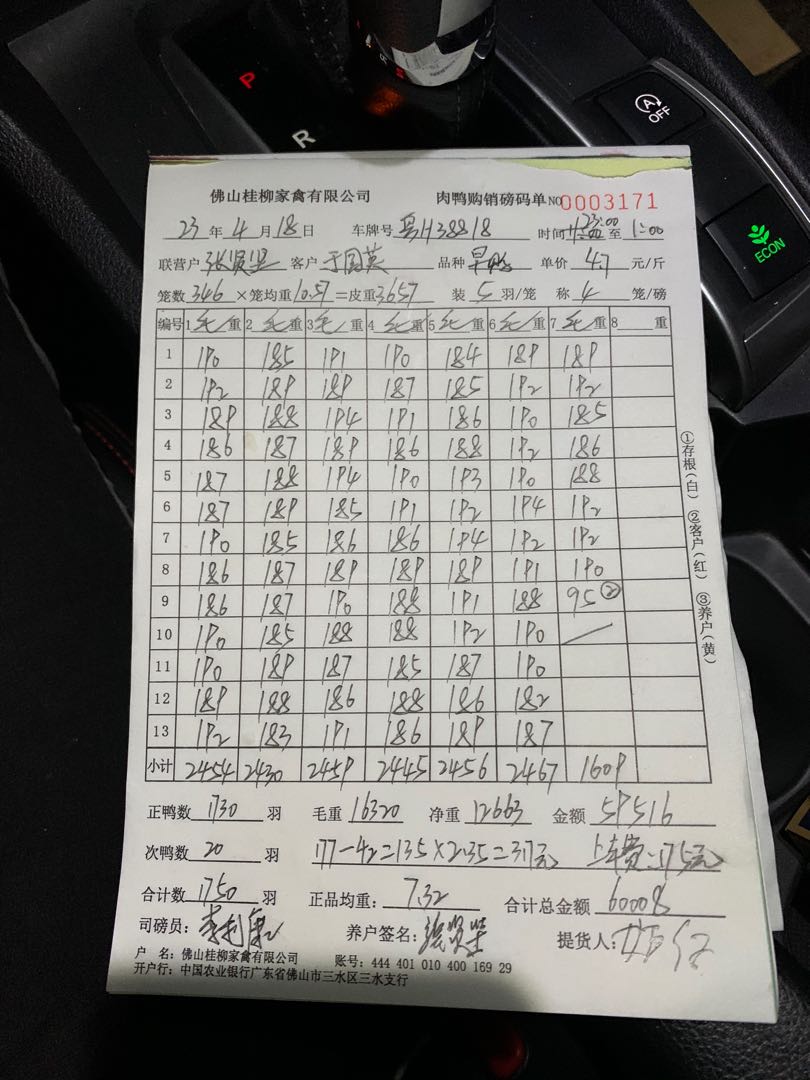 P
R
A
OFF
ECON
佛山桂柳家禽有限公司 肉鸭购销磅码单 NO 0003171
23 年 4 月 18 日 车牌号 粤H38818 时间 23:00 至 1:00
联营户 张贤坚 客户 于国英 品种 早鸭 单价 4.7 元/斤
笼数 346 ×笼均重 10.57 =皮重 3657 装 5 羽/笼 称 4 笼/磅
编号 1 毛/重 2 毛/重 3 毛/重 4 毛/重 5 毛/重 6 毛/重 7 毛/重 8 重
1 190 185 191 190 184 189 189
2 192 189 189 187 185 192 192
3 189 188 194 191 186 190 185
4 186 187 189 186 188 192 186
5 187 188 194 190 193 190 188
6 187 189 185 191 192 194 192
7 190 185 186 186 194 192 192
8 186 187 189 189 189 191 190
9 186 187 190 188 191 188 95②
10 190 185 188 188 192 190
11 190 189 187 185 187 190
12 189 188 186 188 186 182
13 192 183 191 186 189 187
小计 2454 2430 2459 2445 2456 2467 1609
正鸭数 1730 羽 毛重 16320 净重 12663 金额 59516
次鸭数 20 羽 177-42=135×2.35=317元 上车费=175元
合计数 1750 羽 正品均重: 7.32 合计总金额 60008
司磅员: 养户签名: 提货人:
户 名: 佛山桂柳家禽有限公司 账号: 444 401 010 400 169 29
开户行: 中国农业银行广东省佛山市三水区三水支行
①存根(白) ②客户(红) ③养户(黄)